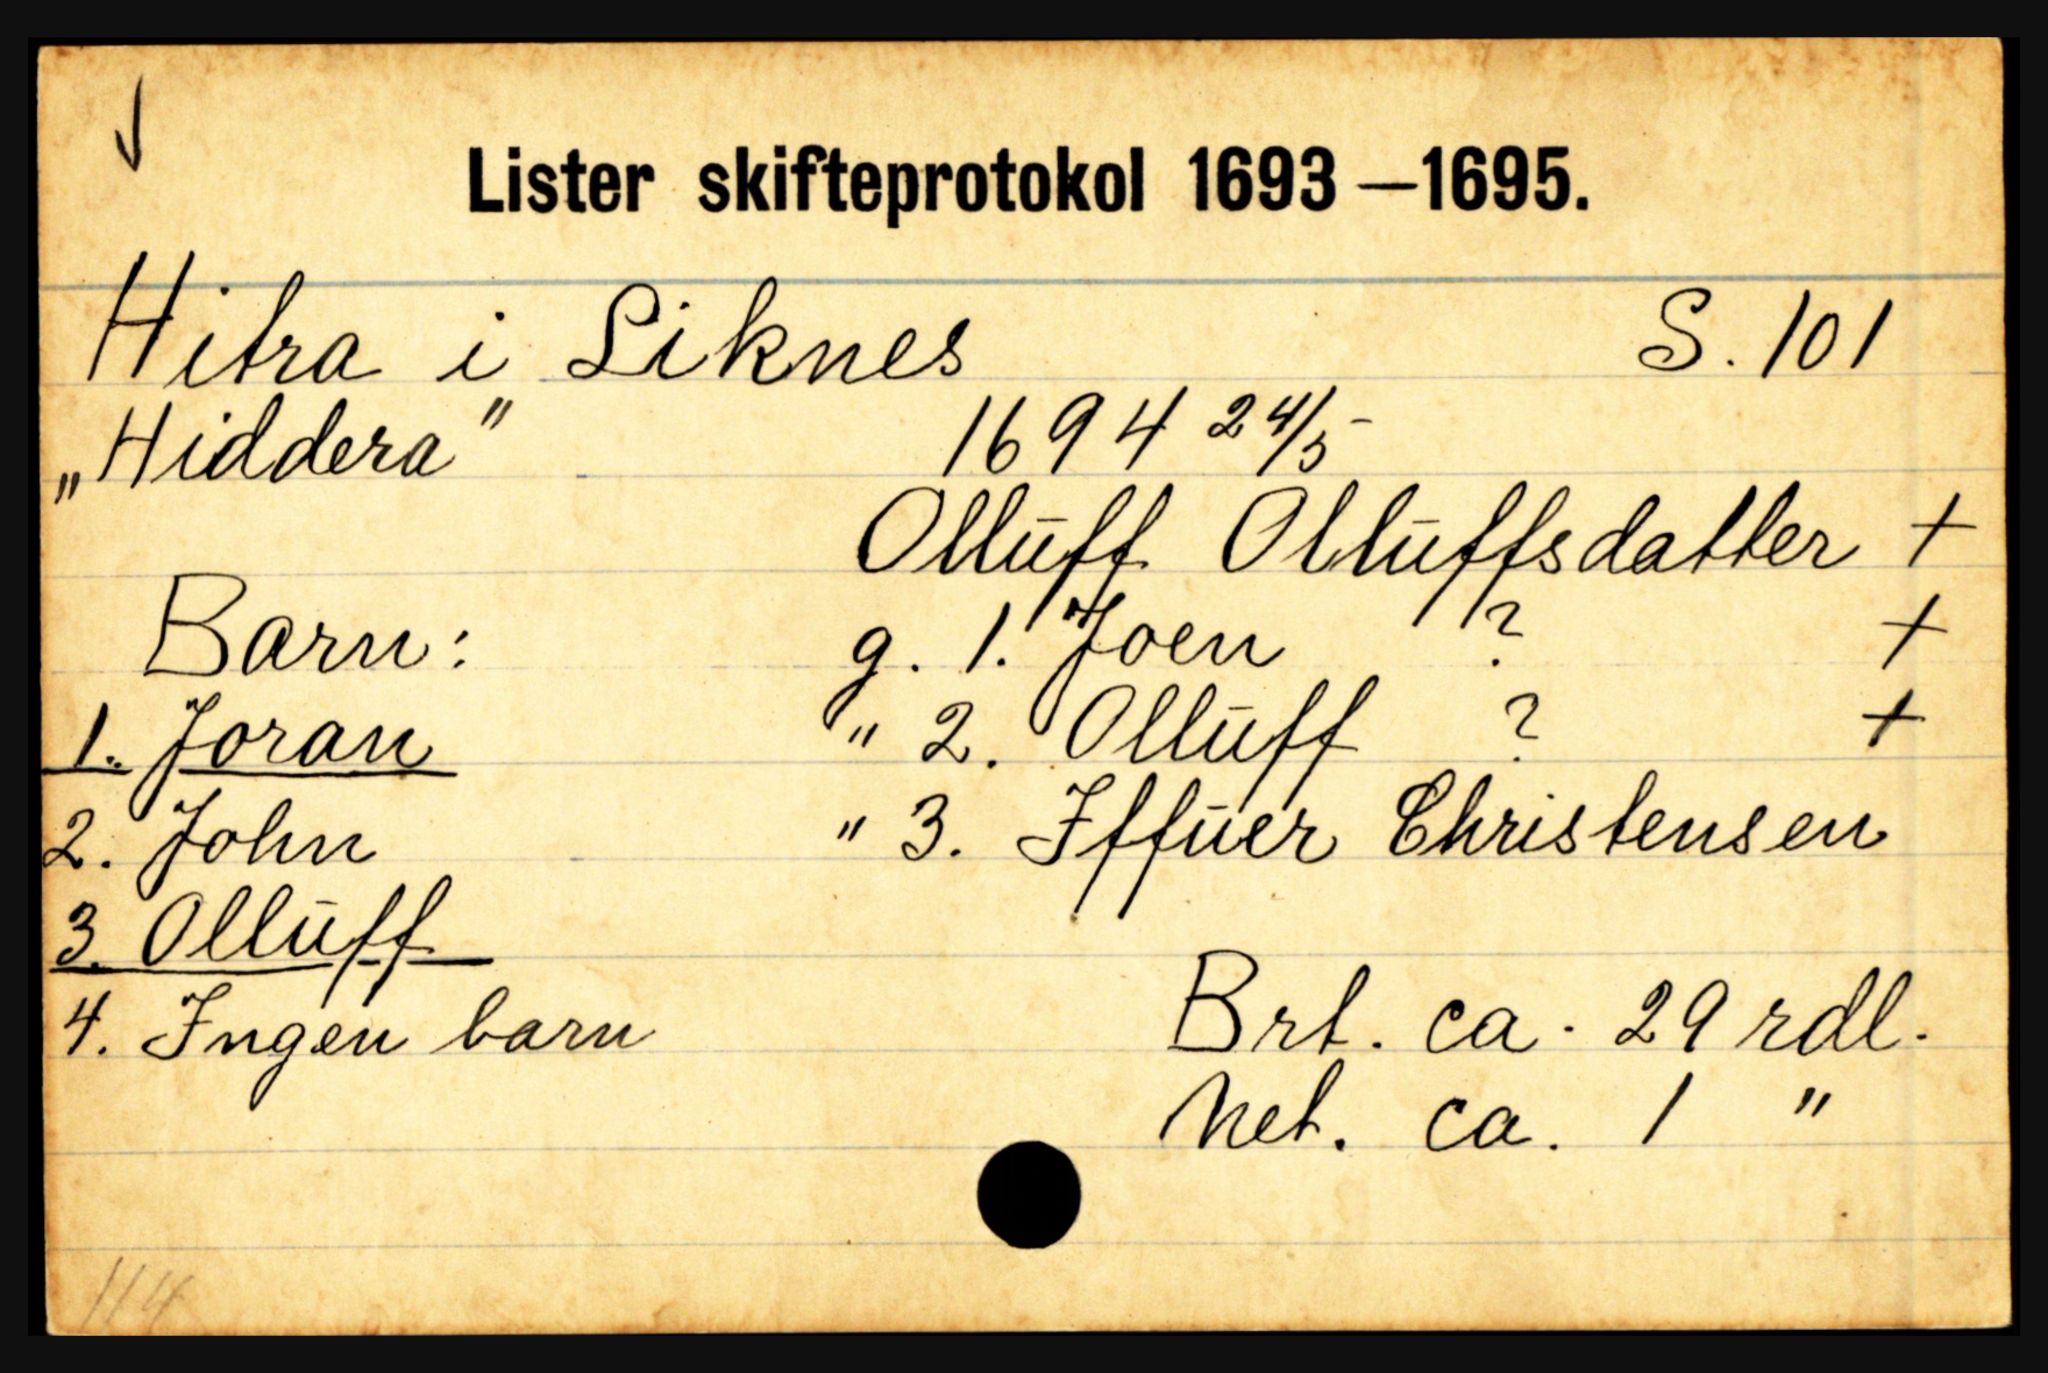 Lister skifteprotokol 1693—1695.
Hitra i Liknes S. 101
„Hiddera" 1694 24/5
Olluff Olluffsdatter +
Barn: g. 1. Joen ? +
1. Joran " 2. Olluff ? +
2. John " 3. Iffuer Christensen
3. Olluff
4. Ingen barn Brt. ca. 29 rdl.
Net. ca. 1 "
114